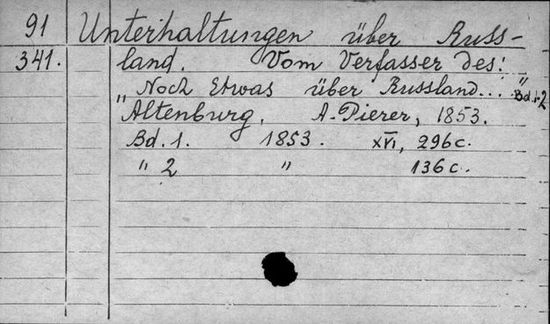 91 Unterhaltungen über Russ-
341. land. Vom Verfasser des:
„Noch Etwas über Russland..." Bd.1-2
Altenburg, A. Pierer, 1853.
Bd. 1. 1853. XVI, 296c.
" 2 " 136c.